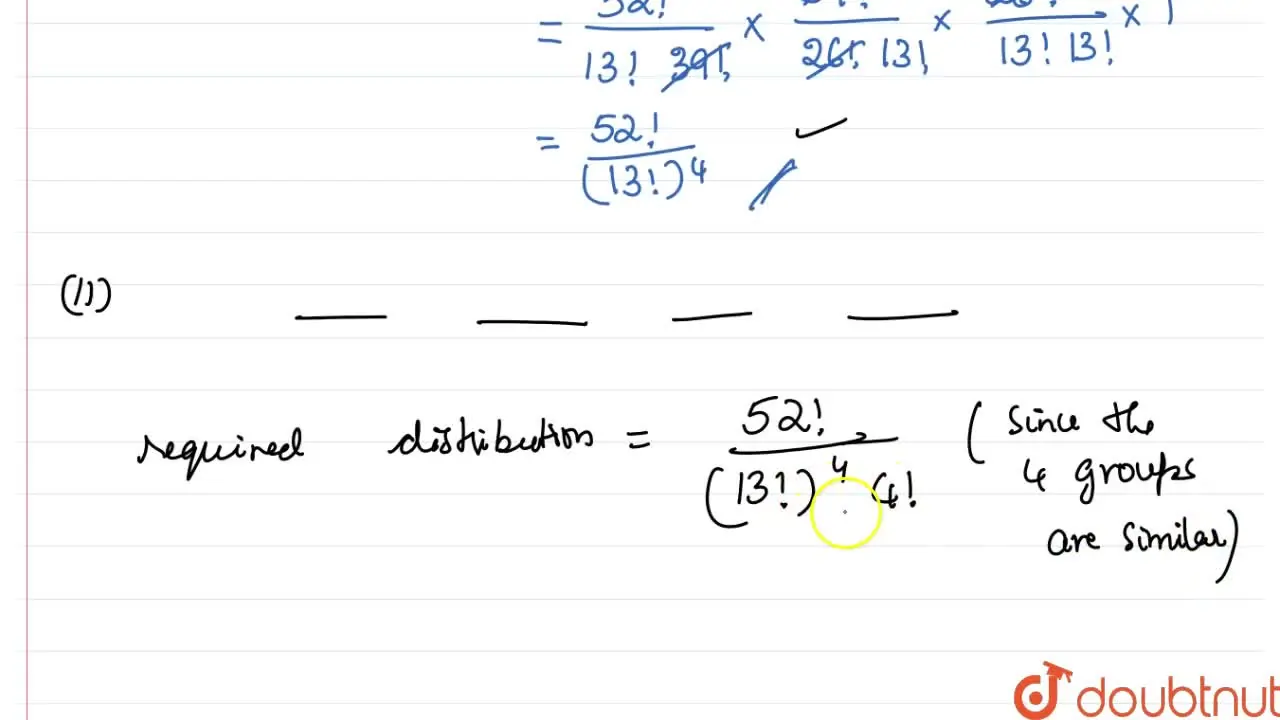 = 52! / 13! 39! × / 26! 13! × / 13! 13! × 1
= 52! / (13!)^4
(11)
required distribution = 52! / (13!)^4 4! (since the
4 groups
are similar)
doubtnut